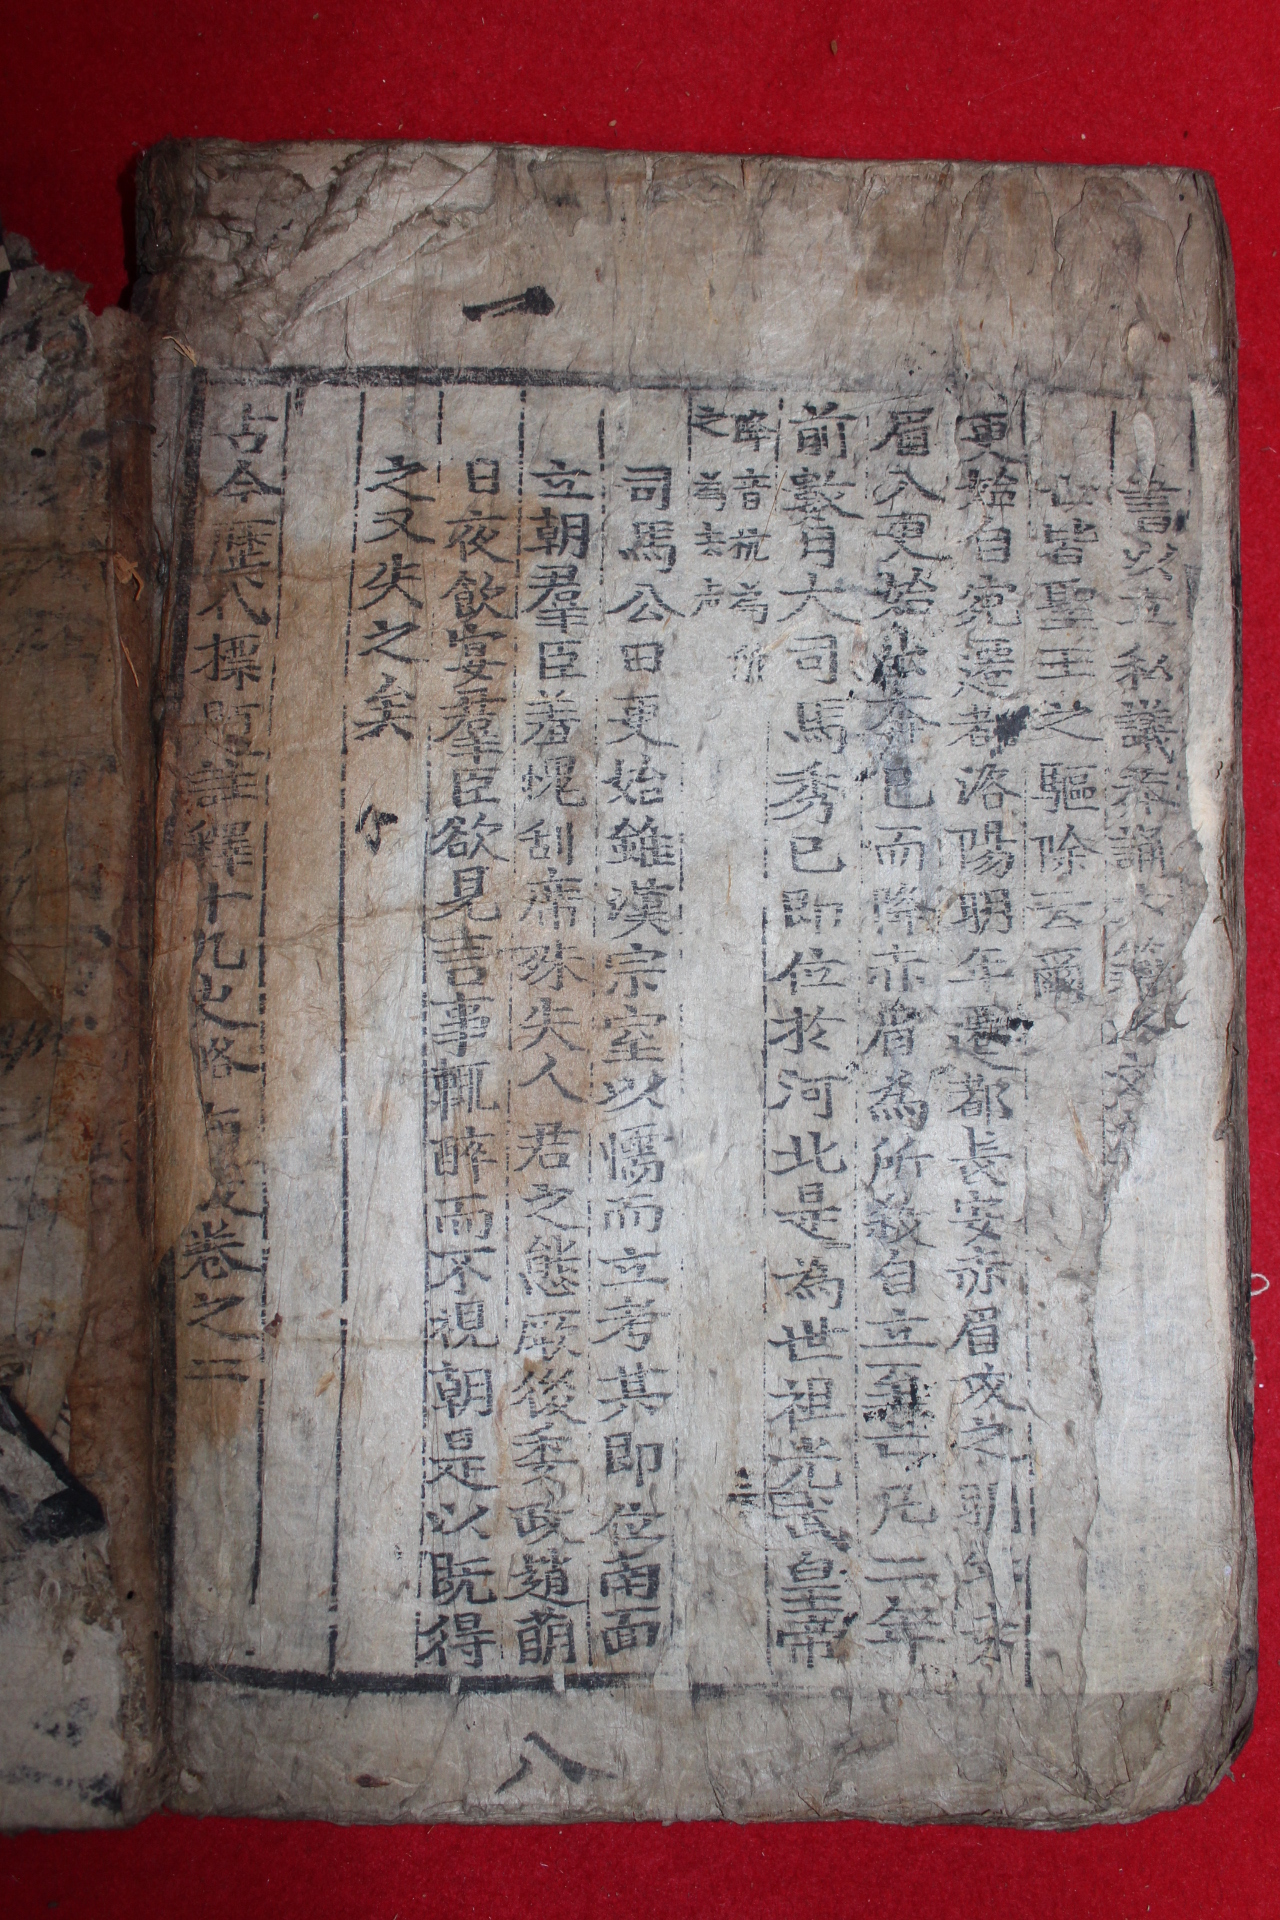 一
書以立私議莽誦六藝以文
世皆聖王之驅除云爾
更始自宛遷都洛陽明年遷都長安赤眉攻之明年赤
眉入更始出奔已而降赤眉為所殺自立至亡凡二年
前數月大司馬秀已即位於河北是為世祖光武皇帝
降音杭為
之為去声
司馬公曰更始雖漢宗室以懦而立考其即位南面
立朝羣臣羞愧刮席殊失人君之態厥後委政趙萌
日夜飲宴羣臣欲見言事輒醉而不視朝是以既得
之又失之矣
古今歷代標題註釋十九史略通攷卷之二
八